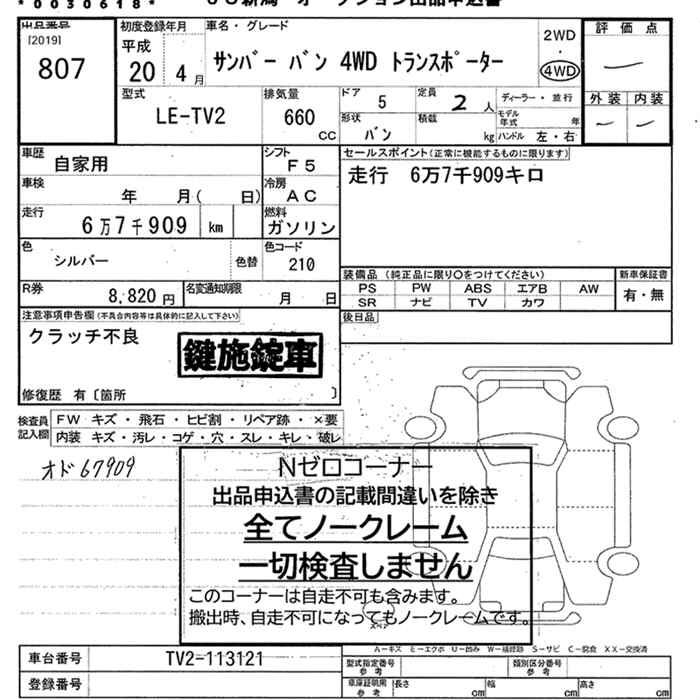 *0030618*
出品番号
[2019]
807
初度登録年月
平成
20 4 月
車名・グレード
サンバー バン 4WD トランスポーター
2WD
・
4WD
評価点
外装 内装
型式
LE-TV2
排気量
660 CC
ドア
5
定員
2 人
形状
バン
積載
kg
ディーラー・並行
モデル年式 年
ハンドル 左・右
車歴
自家用
シフト
F5
車検
年 月( 日)
冷房
AC
走行
6万7千909 km
燃料
ガソリン
色
シルバー
色替
色コード
210
R券
8,820円
名変通知期限
月 日
セールスポイント(正常に機能するものに限ります)
走行 6万7千909キロ
装備品(純正品に限り○をつけてください)
PS PW ABS エアB AW
SR ナビ TV カワ
新車保証書
有・無
後日品
注意事項申告欄(不具合内容等は具体的に記入して下さい)
クラッチ不良
鍵施錠車
修復歴 有〔箇所 〕
検査員記入欄
FW キズ・飛石・ヒビ割・リペア跡・×要
内装 キズ・汚レ・コゲ・穴・スレ・キレ・破レ
オド67909
Nゼロコーナー
出品申込書の記載間違いを除き
全てノークレーム
一切検査しません
このコーナーは自走不可も含みます。
搬出時、自走不可になってもノークレームです。
A-キズ E-エクボ U-凹み W-補修跡 S-サビ C-腐食 XX-交換済
車台番号
TV2-113121
登録番号
型式指定番号
参考
類別区分番号
参考
車庫証明用
参考
長さ cm 幅 cm 高さ cm